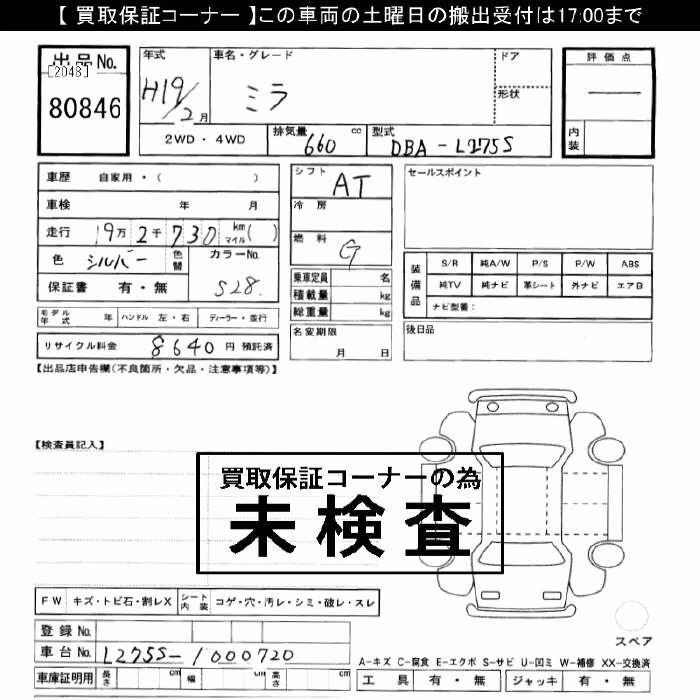 【 買取保証コーナー 】この車両の土曜日の搬出受付は17:00まで
出品No.
[2048]
80846
年式
H19/2月
車名・グレード
ミラ
ドア
形状
評価点
―
内装
2WD・4WD
排気量 660 cc
型式 DBA-L275S
車歴 自家用・( )
車検 年 月
走行 19万2千730 km マイル( )
色 シルバー 色替
カラーNo. S28
保証書 有・無
モデル年式 年 ハンドル 左・右 ディーラー・並行
リサイクル料金 8640 円 預託済
シフト AT
冷房
燃料 G
乗車定員 名
積載量 kg
総重量 kg
名変期限 月 日
セールスポイント
装備品 S/R 純A/W P/S P/W ABS
純TV 純ナビ 革シート 外ナビ エアB
ナビ型番:
後日品
【出品店申告欄(不良箇所・欠品・注意事項等)】
【検査員記入】
買取保証コーナーの為
未検査
FW キズ・トビ石・割レX シート内装 コゲ・穴・汚レ・シミ・破レ・スレ
登録No.
車台No. L275S-1000720
車庫証明用 長さ cm 幅 cm 高さ cm
スペア
A-キズ C-腐食 E-エクボ S-サビ U-凹ミ W-補修 XX-交換済
工具 有・無 ジャッキ 有・無